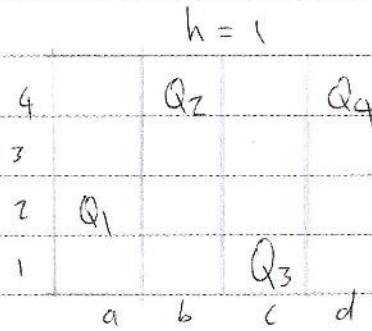 h = 1
4 Q2 Q4
3
2 Q1
1 Q3
a b c d